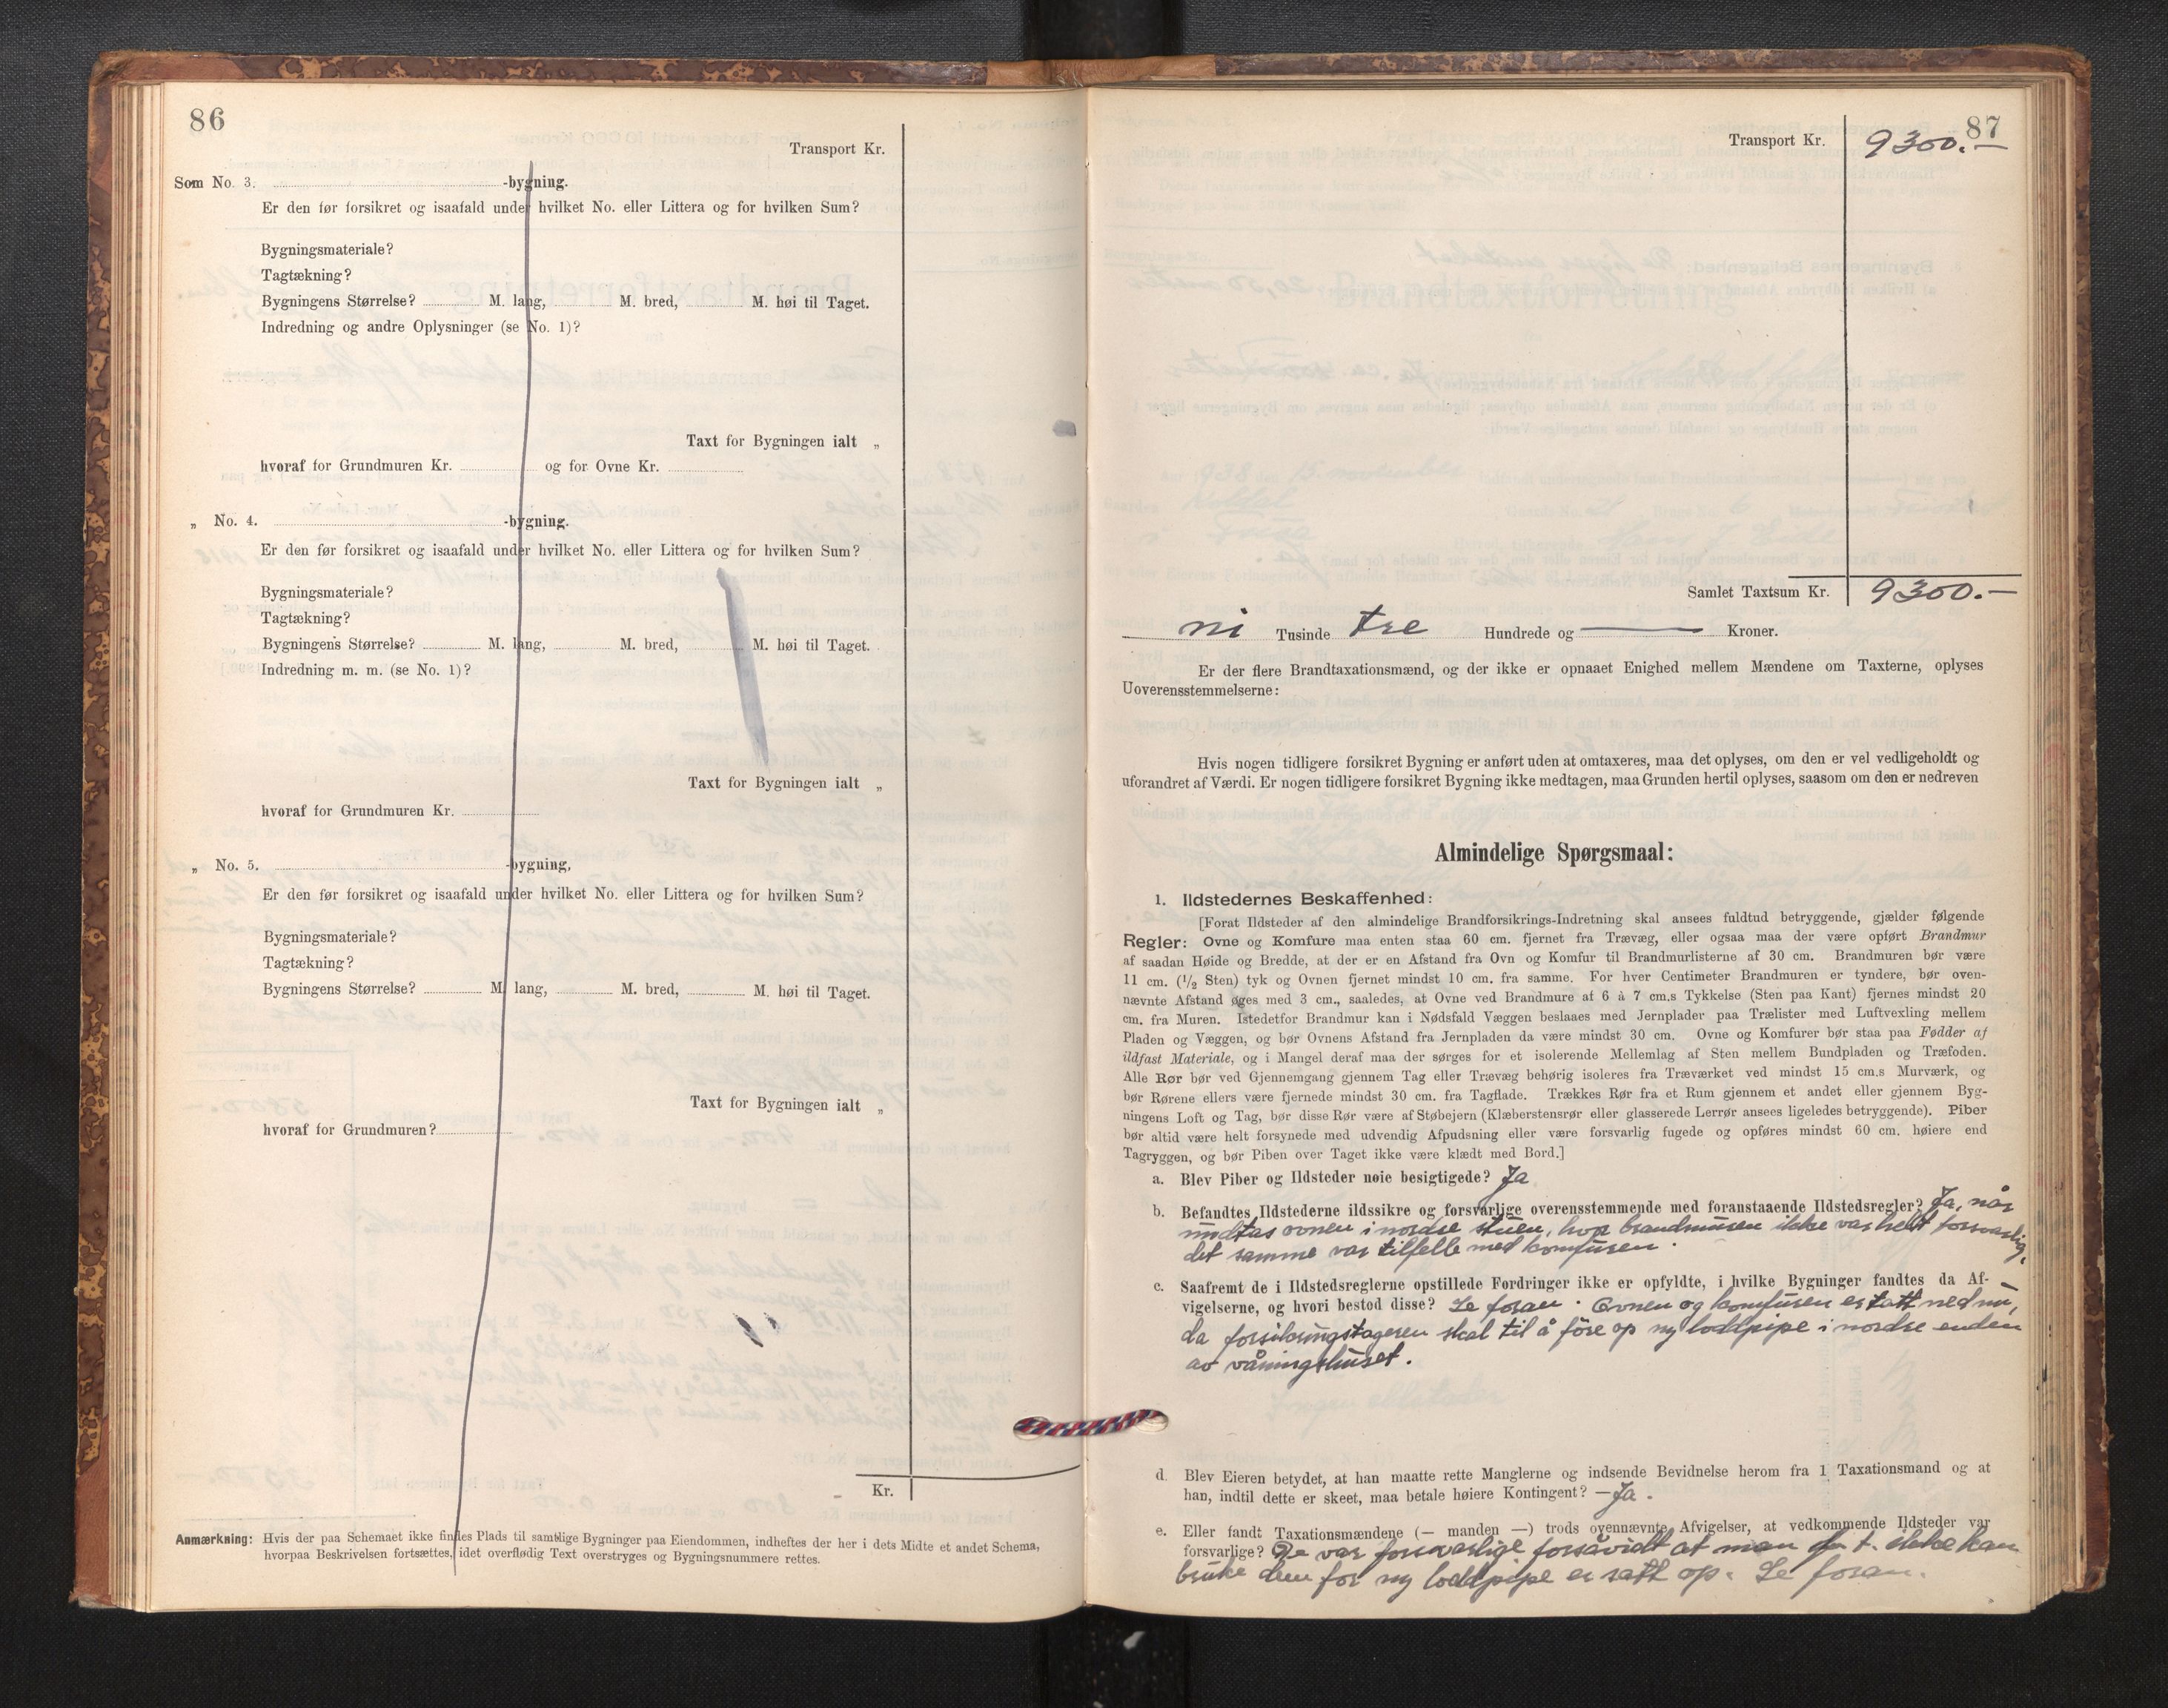 86
Transport Kr.
Som No. 3. -bygning.
Er den før forsikret og isaafald under hvilket No. eller Littera og for hvilken Sum?
Bygningsmateriale?
Tagtækning?
Bygningens Størrelse? M. lang, M. bred, M. høi til Taget.
Indredning og andre Oplysninger (se No. 1)?
Taxt for Bygningen ialt „
hvoraf for Grundmuren Kr. og for Ovne Kr.
„ No. 4. -bygning.
Er den før forsikret og isaafald under hvilket No. eller Littera og for hvilken Sum?
Bygningsmateriale?
Tagtækning?
Bygningens Størrelse? M. lang, M. bred, M. høi til Taget.
Indredning m. m. (se No. 1)?
Taxt for Bygningen ialt „
hvoraf for Grundmuren Kr.
„ No. 5. -bygning.
Er den før forsikret og isaafald under hvilket No. eller Littera og for hvilken Sum?
Bygningsmateriale?
Tagtækning?
Bygningens Størrelse? M. lang, M. bred, M. høi til Taget.
Taxt for Bygningen ialt „
hvoraf for Grundmuren?
Kr.
Anmærkning: Hvis der paa Schemaet ikke findes Plads til samtlige Bygninger paa Eiendommen, indheftes der her i dets Midte et andet Schema,
hvorpaa Beskrivelsen fortsættes, idet overflødig Text overstryges og Bygningsnummere rettes.
87
Transport Kr. 9300.—
Samlet Taxtsum Kr. 9300.—
ni Tusinde tre Hundrede og — Kroner.
Er der flere Brandtaxationsmænd, og der ikke er opnaaet Enighed mellem Mændene om Taxterne, oplyses
Uoverensstemmelserne:
Hvis nogen tidligere forsikret Bygning er anført uden at omtaxeres, maa det oplyses, om den er vel vedligeholdt og
uforandret af Værdi. Er nogen tidligere forsikret Bygning ikke medtagen, maa Grunden hertil oplyses, saasom om den er nedreven
Almindelige Spørgsmaal:
1. Ildstedernes Beskaffenhed:
[Forat Ildsteder af den almindelige Brandforsikrings-Indretning skal ansees fuldtud betryggende, gjælder følgende
Regler: Ovne og Komfure maa enten staa 60 cm. fjernet fra Trævæg, eller ogsaa maa der være opført Brandmur
af saadan Høide og Bredde, at der er en Afstand fra Ovn og Komfur til Brandmurlisterne af 30 cm. Brandmuren bør være
11 cm. (1/2 Sten) tyk og Ovnen fjernet mindst 10 cm. fra samme. For hver Centimeter Brandmuren er tyndere, bør oven-
nævnte Afstand øges med 3 cm., saaledes, at Ovne ved Brandmure af 6 à 7 cm.s Tykkelse (Sten paa Kant) fjernes mindst 20
cm. fra Muren. Istedetfor Brandmur kan i Nødsfald Væggen beslaaes med Jernplader paa Trælister med Luftvexling mellem
Pladen og Væggen, og bør Ovnens Afstand fra Jernpladen da være mindst 30 cm. Ovne og Komfurer bør staa paa Fødder af
ildfast Materiale, og i Mangel deraf maa der sørges for et isolerende Mellemlag af Sten mellem Bundpladen og Træfoden.
Alle Rør bør ved Gjennemgang gjennem Tag eller Trævæg behørig isoleres fra Træværket ved mindst 15 cm.s Murværk, og
bør Rørene ellers være fjernede mindst 30 cm. fra Tagflade. Trækkes Rør fra et Rum gjennem et andet eller gjennem Byg-
ningens Loft og Tag, bør disse Rør være af Støbejern (Klæberstensrør eller glasserede Lerrør ansees ligeledes betryggende). Piber
bør altid være helt forsynede med udvendig Afpudsning eller være forsvarlig fugede og opføres mindst 60 cm. høiere end
Tagryggen, og bør Piben over Taget ikke være klædt med Bord.]
a. Blev Piber og Ildsteder nøie besigtigede? Ja
b. Befandtes Ildstederne ildssikre og forsvarlige overensstemmende med foranstaaende Ildstedsregler? Ja, når
undtas ovnen i nordre stuen, hvor brandmuren ikke var helt forsvarlig,
det samme var tilfelle med komfuren.
c. Saafremt de i Ildstedsreglerne opstillede Fordringer ikke er opfyldte, i hvilke Bygninger fandtes da Af-
vigelserne, og hvori bestod disse? Se foran. Ovnen og komfuren er tatt ned nu,
da forsikringstageren skal til å føre op ny loddpipe i nordre enden
av våningshuset.
d. Blev Eieren betydet, at han maatte rette Manglerne og indsende Bevidnelse herom fra 1 Taxationsmand og at
han, indtil dette er skeet, maa betale høiere Kontingent? — Ja.
e. Eller fandt Taxationsmændene (— manden —) trods ovennævnte Afvigelser, at vedkommende Ildsteder var
forsvarlige? De var forsvarlige forsåvidt at man f. t. ikke kan
bruke dem før ny loddpipe er satt op. Se foran.